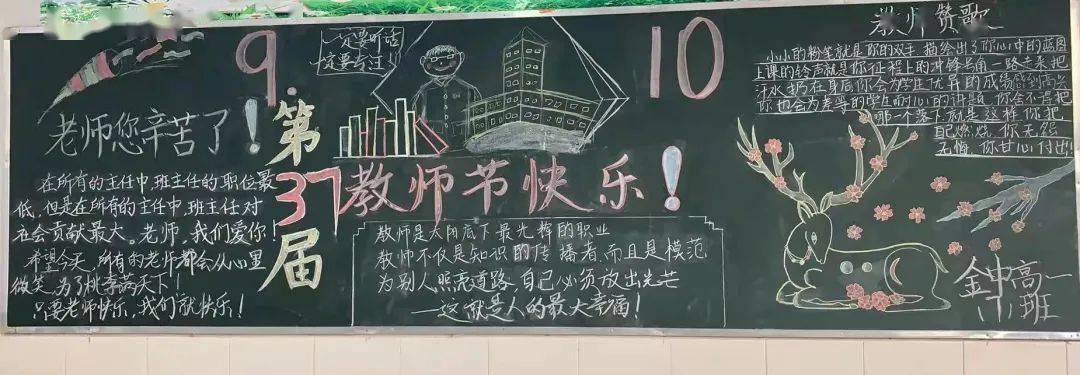 9.10
一定要听话
一定要专注!!
老师您辛苦了!
第37届
教师节快乐!
在所有的主任中,班主任的职位最
低,但是在所有的主任中,班主任对
社会贡献最大。老师,我们爱你!
希望今天,所有的老师都会从心里
微笑,为了桃李满天下!
只要老师快乐,我们就快乐!
教师是太阳底下最光辉的职业
教师不仅是知识的传播者,而且是模范
为别人照亮道路,自己必须放出光芒
—这就是人的最大幸福!
教师赞歌
小小的粉笔就是你的双手 描绘出了你心中的蓝图
上课的铃声就是你征程上的冲锋号角 一路走来把
汗水扔在身后 你会为学生优异的成绩感到高兴
你也会为差等的学生 你会不舍把
哪一个落下 就是这样 你把
自己燃烧 你无怨
无悔 你甘心付出!
金中高一
班